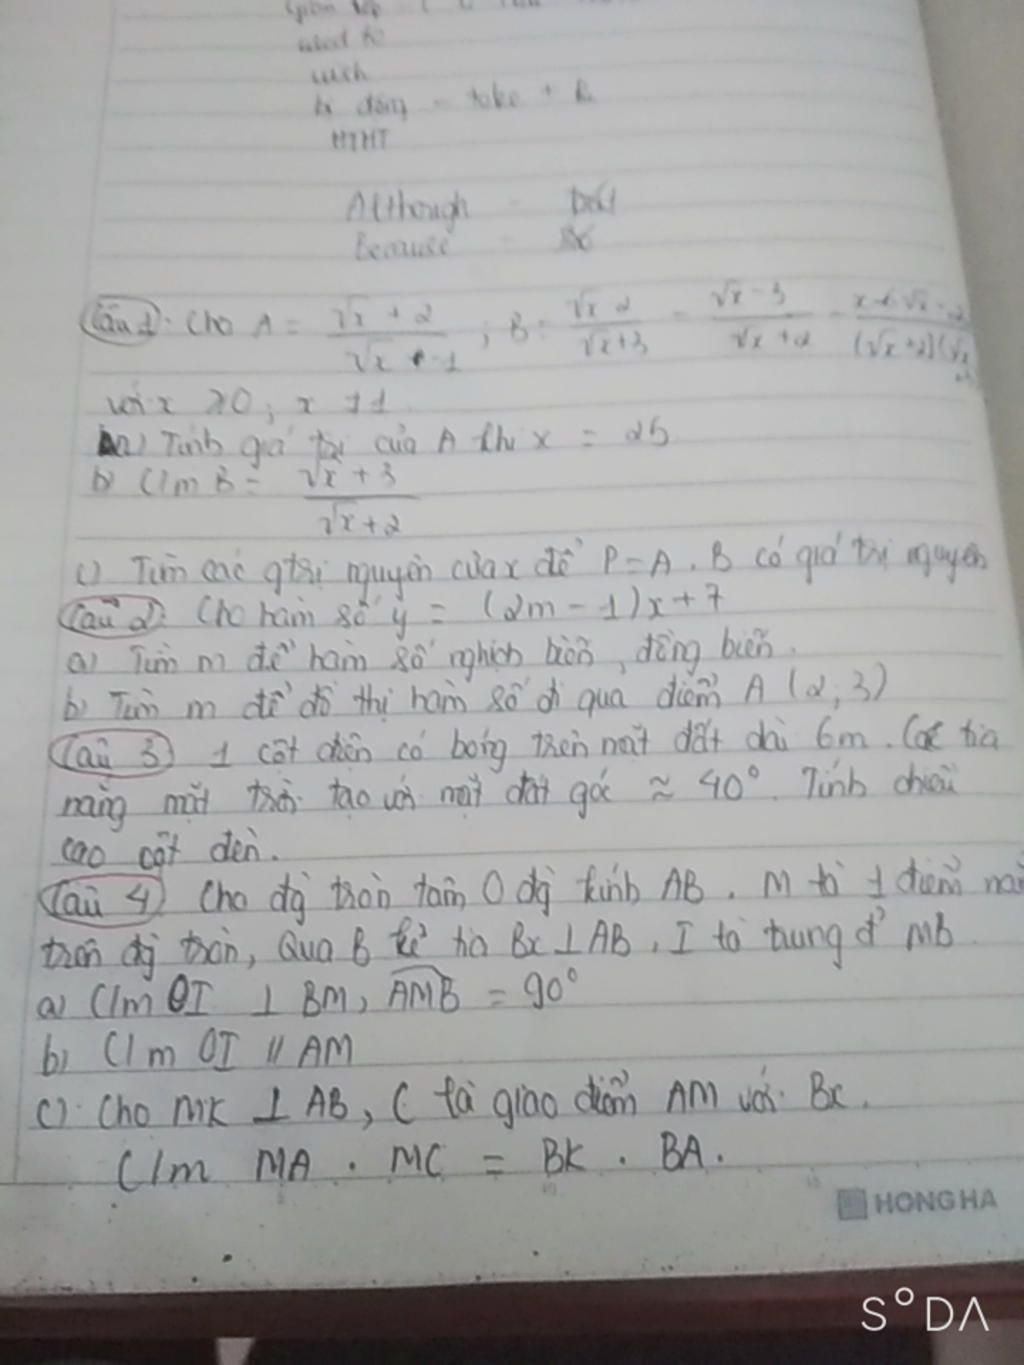 used to
wish
bị động - take +
HTHT
Although -
Because -
Câu 1: Cho A = (√x + 2)/(√x - 1) ; B = (√x - 2)/(√x + 3) - (√x - 3)/(√x + 2) -
với x ≥ 0; x ≠ 1
a) Tính giá trị của A khi x = 25
b) C/m B = (√x + 3)/(√x + 2)
c) Tìm các gtrị nguyên của x để P = A . B có giá trị nguyên
Câu 2: Cho hàm số y = (2m - 1)x + 7
a) Tìm m để hàm số nghịch biến, đồng biến.
b) Tìm m để đồ thị hàm số đi qua điểm A (2; 3)
Câu 3 1 cột điện có bóng trên mặt đất dài 6m. Các tia
nắng mặt trời tạo với mặt đất góc ≈ 40°. Tính chiều
cao cột đèn.
Câu 4 Cho đg tròn tâm O đg kính AB. M là 1 điểm
trên đg tròn, Qua B kẻ tia Bx ⊥ AB, I là trung đ' MB
a) C/m OI ⊥ BM, AMB = 90°
b) C/m OI // AM
c) Cho MK ⊥ AB, C là giao điểm AM với Bx.
C/m MA . MC = BK . BA.
HONG HA
S°DA